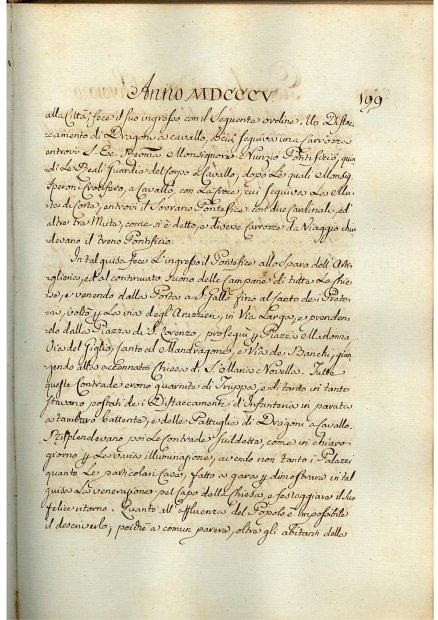 Anno MDCCCV 199
alla Città, fece il suo ingresso con il seguente ordine. Un Distac-
camento di Dragoni a cavallo, a cui seguiva una Carrozza
entrovi S. Ecc. Rev̄ma Monsignore Nunzio Pontificio, quin
di Le Reali Guardie del Corpo a Cavallo, dopo Le quali Monsig.
Crocifero, a Cavallo con La Croce, cui seguiva La Mu-
ta di Corte, entrovi il Sovrano Pontefice con due Cardinali, ed
altre tre Mute, come si è detto, e diverse Carrozze da Viaggio chiu
devano il treno Pontificio.
In tal guisa fece L'ingresso il Pontefice allo sparo dell'Arti-
glieria, ed al continuato suono delle Campane di tutte Le Chie
se, e venendo dalla Porta a S. Gallo fino al Canto de i Preto-
ni, voltò per La via degl'Arazzieri, in Via Larga, e prenden-
do dalla Piazza di S. Lorenzo, proseguì per Piazza Madonna
Via del Giglio, Canto al Mandragone, e Via de Banchi, giun
gendo alla accennata Chiesa di S. Maria Novella. Tutte
queste Contrade erano guarnite di Truppa, e di tanto in tanto
stavano postati de i Distaccamenti d'Infanteria in parata
a tamburo battente, e delle Pattuglie di Dragoni a Cavallo.
Risplendevano poi Le Contrade suddette, come in chiaro
giorno per La varia illuminazione, avendo non tanto i Palazzi
quanto Le particolari Case, fatto a gara per dimostrare in tal
guisa La venerazione pel Capo della Chiesa, e festeggiare il suo
felice ritorno. Quanto all'affluenza del Popolo è impossibile
il descriverlo, poichè a comun parere, oltre gli abitanti della